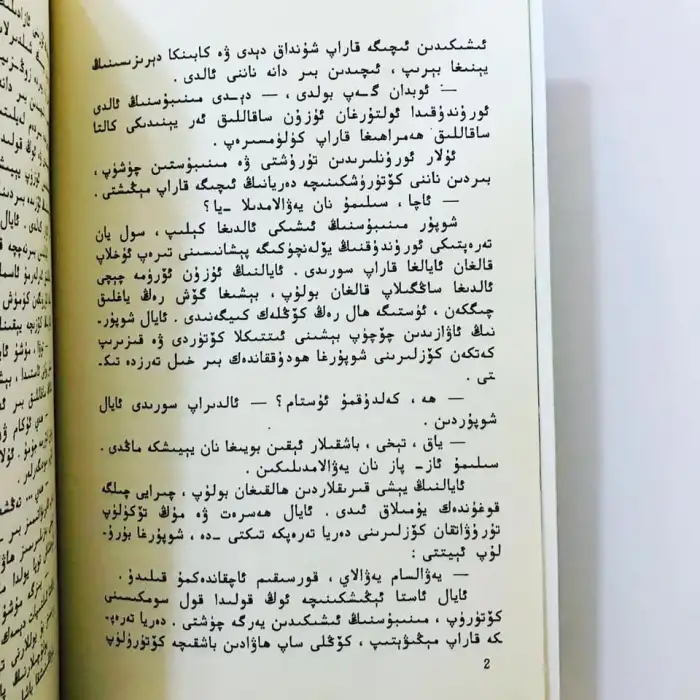 ئىشىكىدىن ئىچىگە قاراپ شۇنداق دېدى ۋە كابىنكا دېرىزىسىنىڭ
يېنىغا بېرىپ ، ئىچىدىن بىر دانە ناننى ئالدى .
— ئوبدان گەپ بولدى ، — دېدى مىنىبۇسنىڭ ئالدى
ئورۇندۇقىدا ئولتۇرغان ئۇزۇن ساقاللىق ئەر يېنىدىكى كالتا
ساقاللىق ھەمراھىغا قاراپ كۈلۈمسىرەپ .
ئۇلار ئورۇنلىرىدىن تۇرۇشتى ۋە مىنىبۇستىن چۈشۈپ ،
بىردىن ناننى كۆتۈرۈشكىنىچە دەريانىڭ ئىچىگە قاراپ مېڭىشتى .
— ئاچا ، سىلىمۇ نان يەۋالامدىلا -يا ؟
شوپۇر مىنىبۇسنىڭ ئىشىكى ئالدىغا كېلىپ ، سول يان
تەرەپتىكى ئورۇندۇقنىڭ يۆلەنچۈكىگە پېشانىسىنى تىرەپ ئۇخلاپ
قالغان ئايالغا قاراپ سورىدى . ئايالنىڭ ئۇزۇن ئۆرۈمە چېچى
ئالدىغا ساڭگىلاپ قالغان بولۇپ ، بېشىغا گۆش رەڭ ياغلىق
چىگكەن ، ئۈستىگە ھال رەڭ كۆڭلەك كىيگەنىدى . ئايال شوپۇر-
نىڭ ئاۋازىدىن چۆچۈپ بېشىنى ئىتتىكلا كۆتۈردى ۋە قىزىرىپ
كەتكەن كۆزلىرىنى شوپۇرغا ھودۇققاندەك بىر خىل تەرزدە تىك-
تى .
— ھە ، كەلدۇقمۇ ئۇستام ؟ — ئالدىراپ سورىدى ئايال
شوپۇردىن .
— ياق ، تېخى ، باشقىلار ئېقىن بويىغا نان يېيىشكە ماڭدى .
سىلىمۇ ئاز- پاز نان يەۋالامدىلىكىن .
ئايالنىڭ يېشى قىرىقلاردىن ھالقىغان بولۇپ ، چىرايى چىلگە
قوغۇندەك يۇمىلاق ئىدى . ئايال ھەسرەت ۋە مۇڭ تۆكۈلۈپ
تۇرۇۋاتقان كۆزلىرىنى دەريا تەرەپكە تىكتى -دە ، شوپۇرغا بۇرۇ-
لۇپ ئېيتتى :
— يەۋالسام يەۋالاي ، قورسىقىم ئاچقاندەكمۇ قىلىدۇ .
ئايال ئاستا ئېڭىشكىنىچە ئوڭ قولىدا قول سومكىسىنى
كۆتۈرۈپ ، مىنىبۇسنىڭ ئىشىكىدىن يەرگە چۈشتى . دەريا تەرەپ-
كە قاراپ مېڭىۋېتىپ ، كۆڭلى ساپ ھاۋادىن باشقىچە كۆتۈرۈلۈپ
2